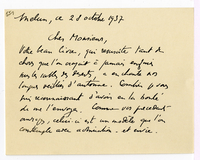 ce 28 octobre 1937
Cher Monsieur,
Votre beau livre, qui ressuscite tant de
choses que l'on croyait à jamais enfouies
les sables des , a enchanté nos
longues veillées d'automne. Combien je vous
suis reconnaissant d'avoir eu la bonté
de me l'envoyer. Comme vos précédents
ouvrages, celui-ci est un modèle que l'on
contemple avec admiration, et envie.